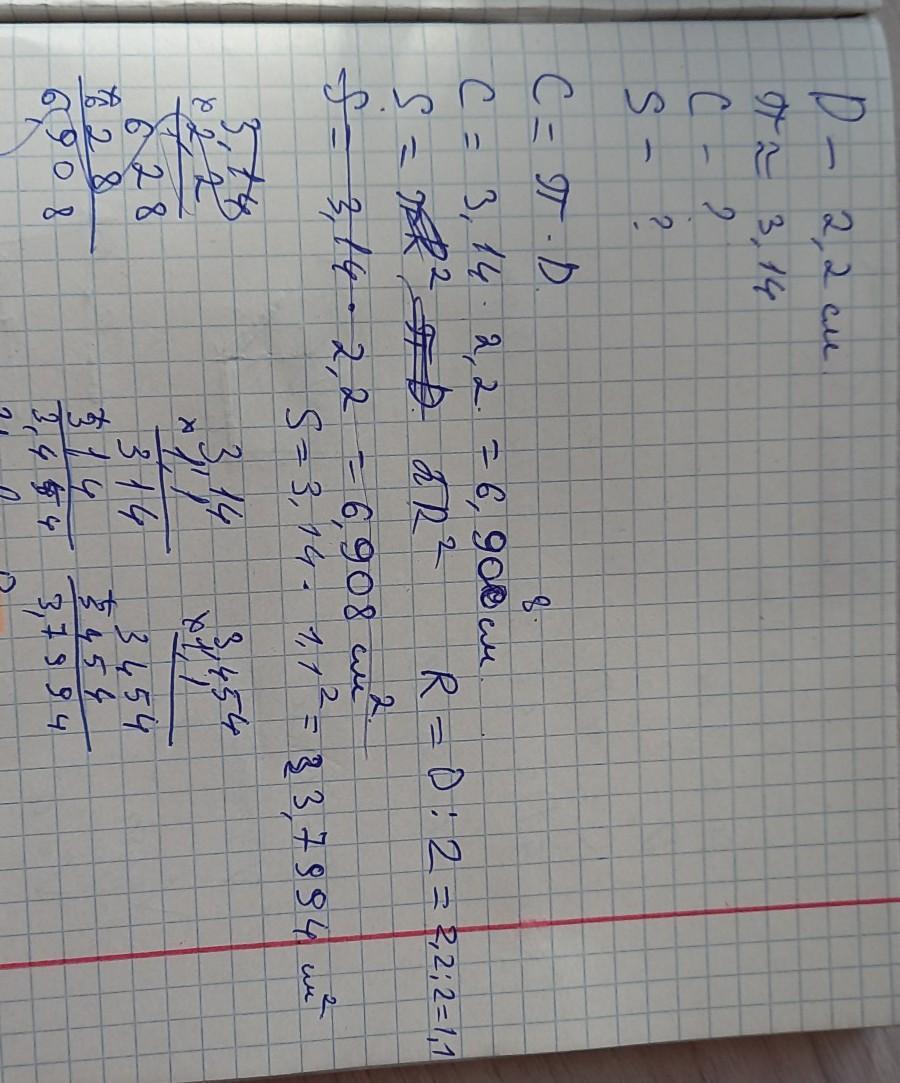 D - 2,2 см.
π ≈ 3,14
C - ?
S - ?
C = π · D.
C = 3,14 · 2,2. = 6,908 см.
S = πR² πD. πR² R = D : 2 = 2,2 : 2 = 1,1
S = 3,14 · 2,2 = 6,908 см².
S = 3,14 · 1,1² = 3,7994 см²
3,14
× 2,2
628
+ 628
6,908
3,14
× 1,1
314
+ 314
3,454
3,454
× 1,1
3454
+ 3454
3,7994